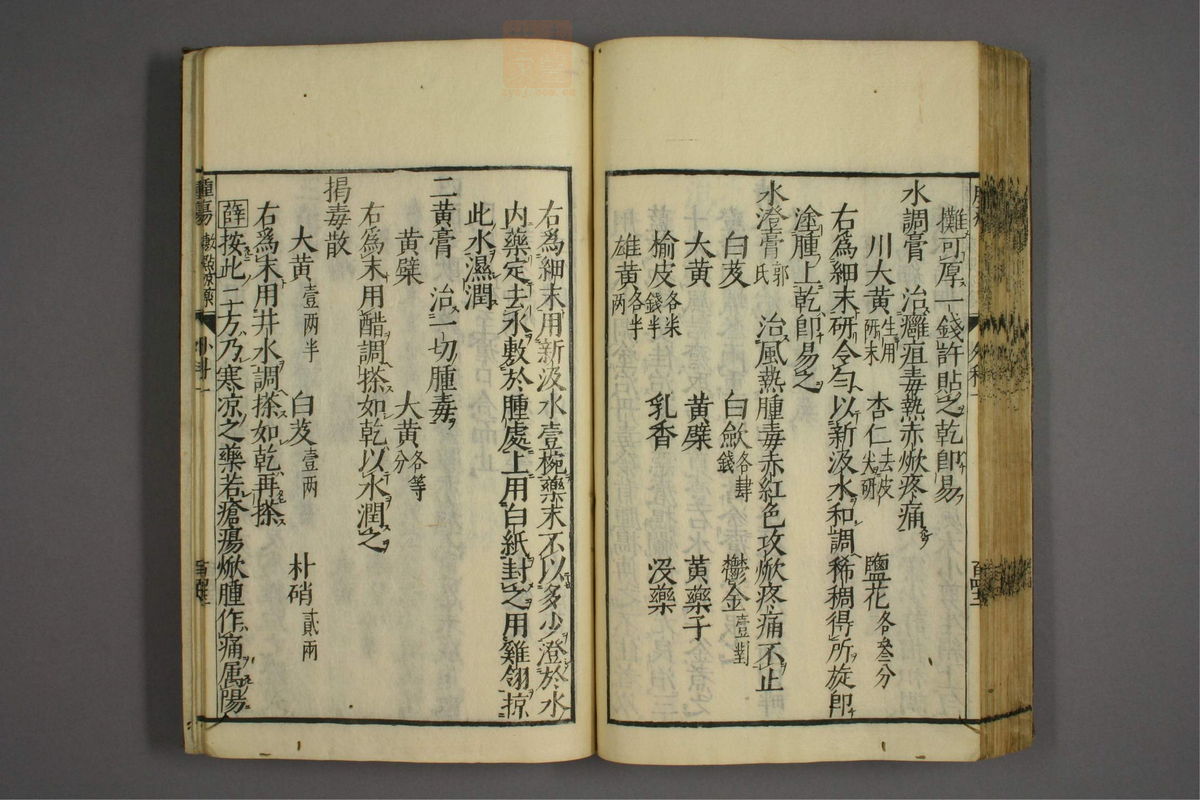 攤可厚一錢許貼之乾即易
水調膏　治癰疽毒熱赤焮疼痛
川大黃生用研末　杏仁去皮尖研　鹽花各叄分
右爲細末研令勻以新汲水和調稀稠得所旋即
塗腫上乾即易之
水澄膏郭氏　治風熱腫毒赤紅色攻焮疼痛不止
白芨　白歛各肆錢　鬱金壹對
大黃　黃蘗　黃藥子
榆皮各柒錢半　乳香　沒藥
雄黃各半兩
右爲細末用新汲水壹椀藥末不以多少澄於水
內藥定去水敷於腫處上用白紙封之用雞翎掠
此水濕潤
二黃膏　治一切腫毒
黃蘗　大黃各等分
右爲末用醋調搽如乾以水潤之
揭毒散
大黃壹兩半　白芨壹兩　朴硝貳兩
右爲末用井水調搽如乾再搽
薛按此二方乃寒凉之藥若瘡瘍焮腫作痛属陽
腫瘍
外科一